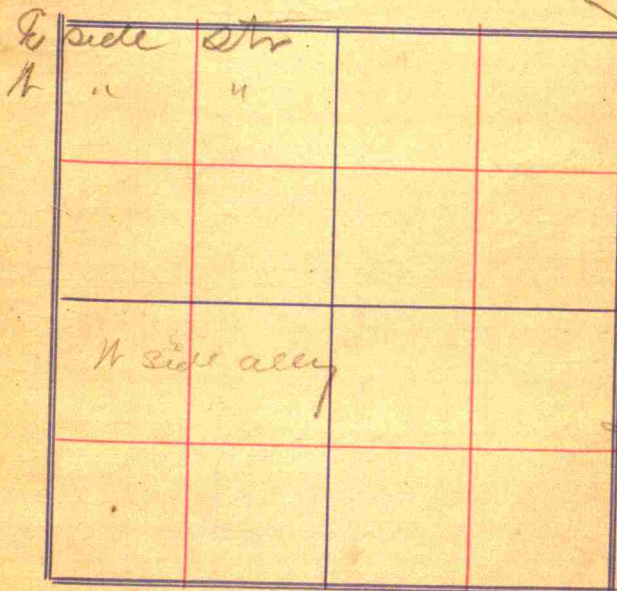 E side str
N " "
N side alley